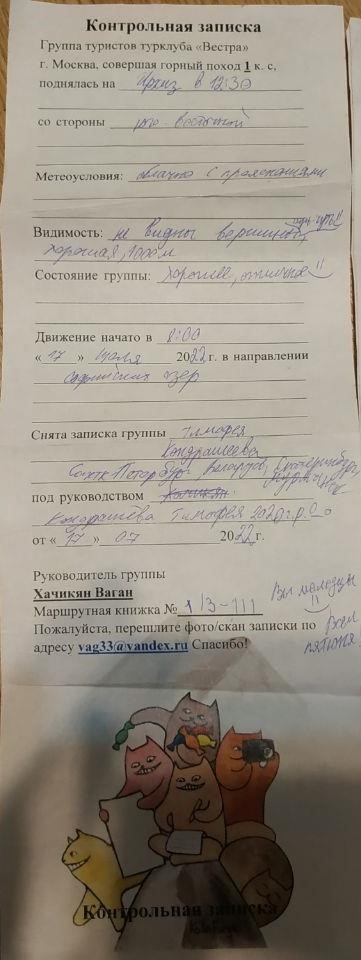 Контрольная записка
Группа туристов турклуба «Вестра»
г. Москва, совершая горный поход 1 к. с,
поднялась на Архыз в 12:30
со стороны юго-восточной
Метеоусловия: облачно с прояснениями
Видимость: не видны вершины
хорошая, 1000м
Состояние группы: хорошее, отличное
Движение начато в 8:00
« 17 » июля 2022 г. в направлении
Софийских озер
Снята записка группы Тимофея
Кондрашёва
Санкт-Петербург, Беларусь, Екатеринбург,
под руководством Хачикян
Кондрашёва Тимофея
от « 17 » 07 2022 г.
Руководитель группы
Хачикян Ваган
Маршрутная книжка № 1/3-111
Вы молодцы
Пожалуйста, перешлите фото/скан записки по
адресу vag33@yandex.ru Спасибо!
Всем
Контрольная записка